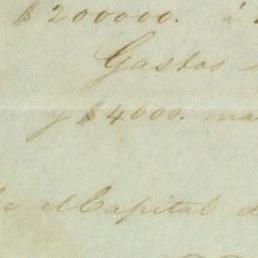 $200000. á
Gastos
y $4000. ma
Capital d